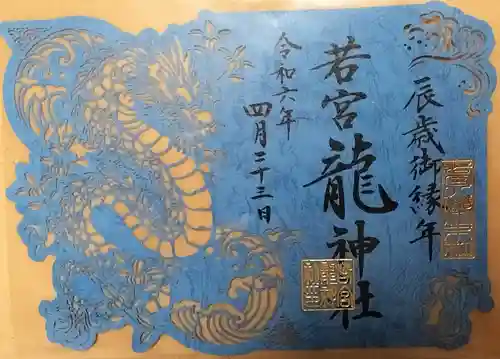 辰歳御縁年
若宮龍神社
令和六年
四月二十三日